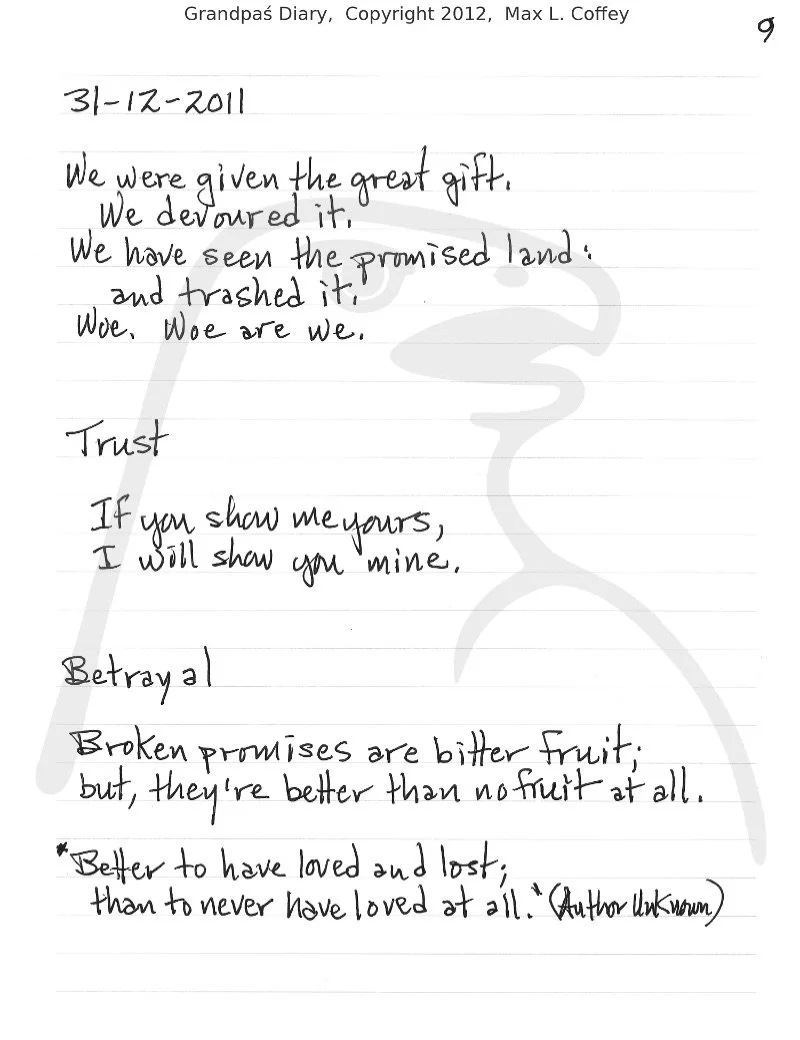 Grandpaś Diary,  Copyright 2012,  Max L. Coffey
9
31-12-2011
We were given the great gift.
We devoured it.
We have seen the promised land:
and trashed it.
Woe. Woe are we.
Trust
If you show me yours,
I will show you mine.
Betrayal
Broken promises are bitter fruit;
but, they're better than no fruit at all.
"Better to have loved and lost;
than to never have loved at all." (Author Unknown)